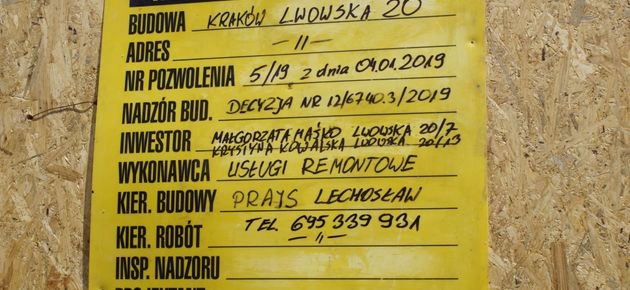 BUDOWA KRAKÓW LWOWSKA 20
ADRES — 11 —
NR POZWOLENIA 5/19 z dnia 04.01.2019
NADZÓR BUD. DECYZJA NR 12/6740.3/2019
INWESTOR MAŁGORZATA MAŚKO LWOWSKA 20/7
KRYSTYNA KOWALSKA LWOWSKA 20/13
WYKONAWCA USŁUGI REMONTOWE
KIER. BUDOWY PRAJS LECHOSŁAW
TEL 695 339 931
KIER. ROBÓT — 11 —
INSP. NADZORU
PROJEKTANT